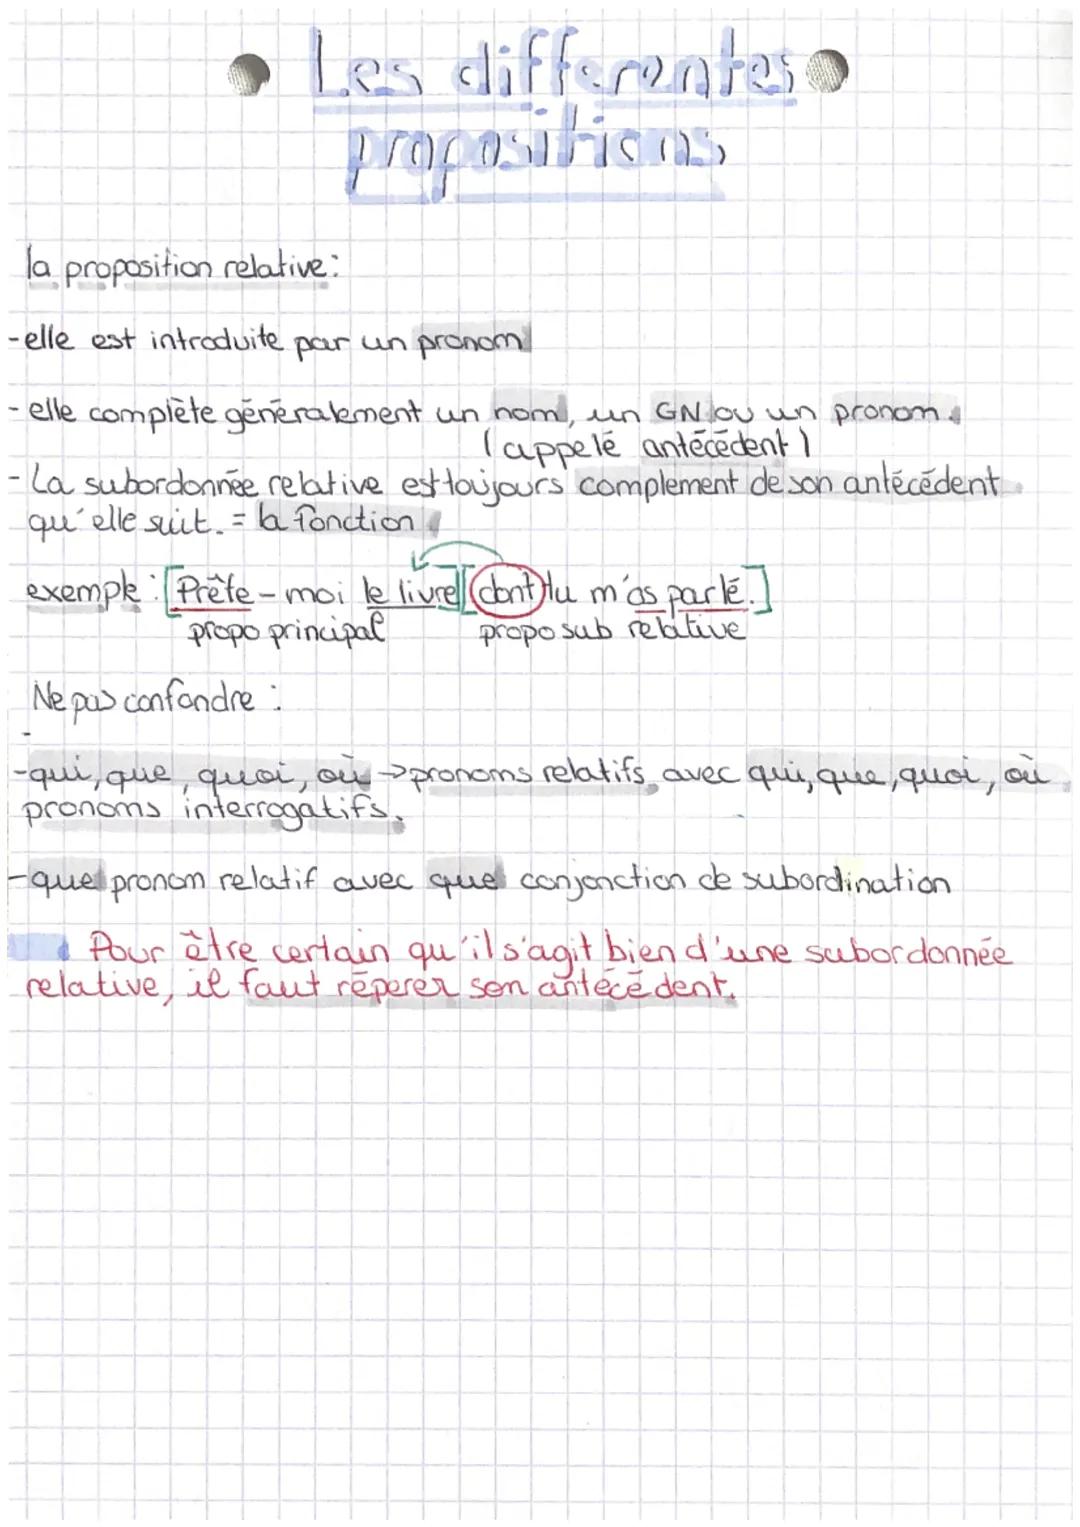 Les differentes
propositions
la proposition relative:
-elle est introduite par un pronom
- elle complète généralement un nom, un GN ou un pronom.
(appelé antécédent)
- La subordonnée relative est toujours complement de son antécédent
qu'elle suit. = la fonction
exemple : [Prête-moi le livre][dont tu m'as parlé.]
propo principal propo sub relative
Ne pas confondre :
-
-qui, que, quoi, où → pronoms relatifs avec qui, que, quoi, où
pronoms interrogatifs.
-que pronom relatif avec que conjonction de subordination
Pour être certain qu'il s'agit bien d'une subordonnée
relative, il faut réperer son antécédent.